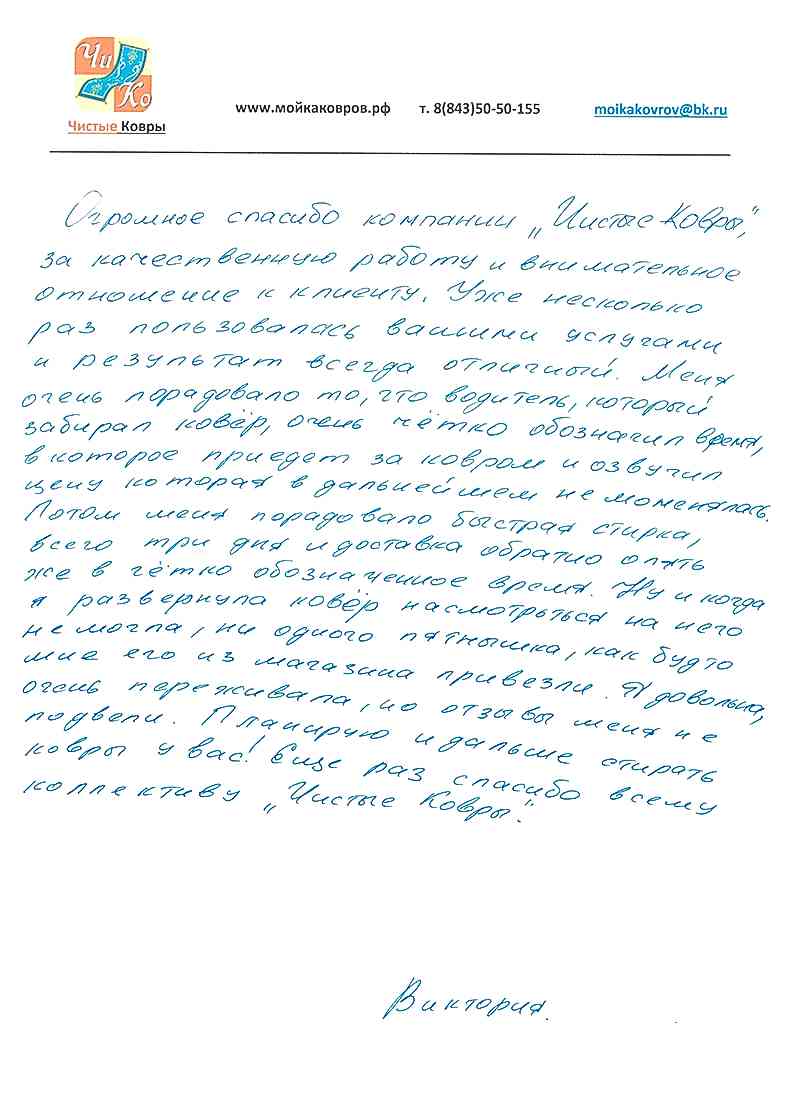 Чи
Ко
Чистые Ковры
www.мойкаковров.рф т. 8(843)50-50-155 moikakovrov@bk.ru
Огромное спасибо компании „Чистые Ковры",
за качественную работу и внимательное
отношение к клиенту. Уже несколько
раз пользовалась вашими услугами
и результат всегда отличный. Меня
очень порадовало то, что водитель, который
забирал ковёр, очень чётко обозначил время,
в которое приедет за ковром и озвучил
цену которая в дальнейшем не моменялась.
Потом меня порадовало быстрая стирка,
всего три дня и доставка обратно опять
же в чётко обозначенное время. Ну и когда
я развернула ковёр насмотрться на него
не могла, ни одного пятнышка, как будто
мне его из магазина привезли. Я довольна,
очень переживала, но отзывы меня не
подвели. Планирую и дальше стирать
ковры у вас! Еще раз спасибо всему
коллективу „Чистые Ковры".
Виктория.